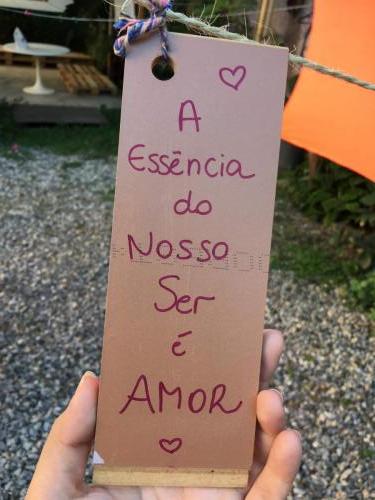 A
Essência
do
Nosso
Ser
é
AMOR